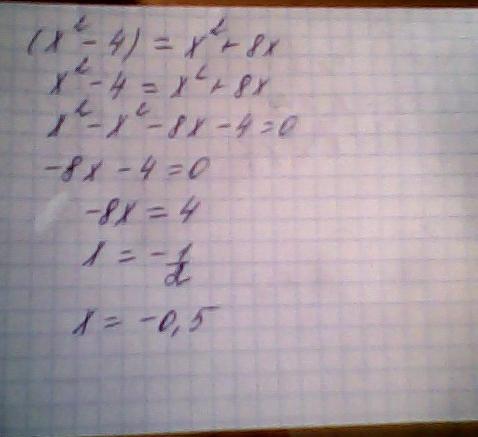 (x² - 4) = x² + 8x
x² - 4 = x² + 8x
x² - x² - 8x - 4 = 0
-8x - 4 = 0
-8x = 4
x = -1/2
x = -0,5